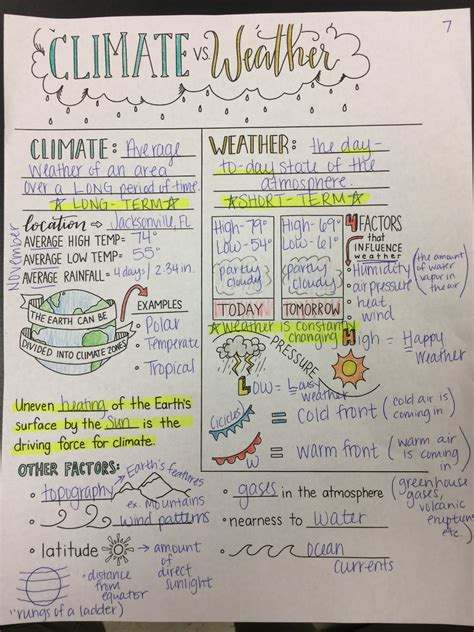 7
CLIMATE vs. Weather
CLIMATE: Average
weather of an area
over a LONG period of time.
☆LONG-TERM☆
location → Jacksonville, FL
November
AVERAGE HIGH TEMP= 74°
AVERAGE LOW TEMP= 55°
AVERAGE RAINFALL= 4days/2.34in.
THE EARTH CAN BE
DIVIDED INTO CLIMATE ZONES
EXAMPLES
• Polar
• Temperate
• Tropical
Uneven heating of the Earth's
surface by the Sun is the
driving force for climate.
WEATHER: the day-
to-day state of the
atmosphere.
☆SHORT-TERM☆
High-79°
Low-54°
partly
cloudy
TODAY
High-69°
Low-61°
partly
cloudy
TOMORROW
4 FACTORS
that
INFLUENCE
weather
• Humidity (the amount
of water
vapor in
the air)
• air pressure
• heat
• wind
☆Weather is constantly
changing
PRESSURE
High = Happy
Weather
Low = Lousy
weather
Cicicles = cold front (cold air is
coming in)
W = warm front (warm air
is coming
in)
OTHER FACTORS:
• topography → Earth's features
ex. Mountains
• wind patterns
• latitude → amount
of direct
sunlight
• distance
from
equator
"rungs of a ladder)
• gases in the atmosphere (greenhouse
gases,
volcanic
eruptions
etc.)
• nearness to water
• ocean
currents